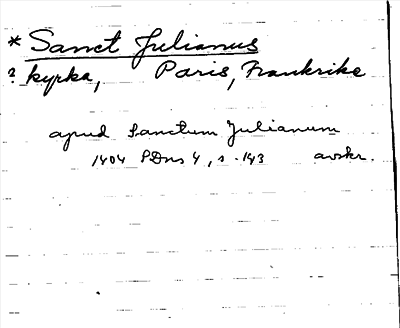 * Sanct Julianus
? kyrka, Paris, Frankrike
apud Sanctum Julianum
1404 SDns 4, s. 143 avskr.